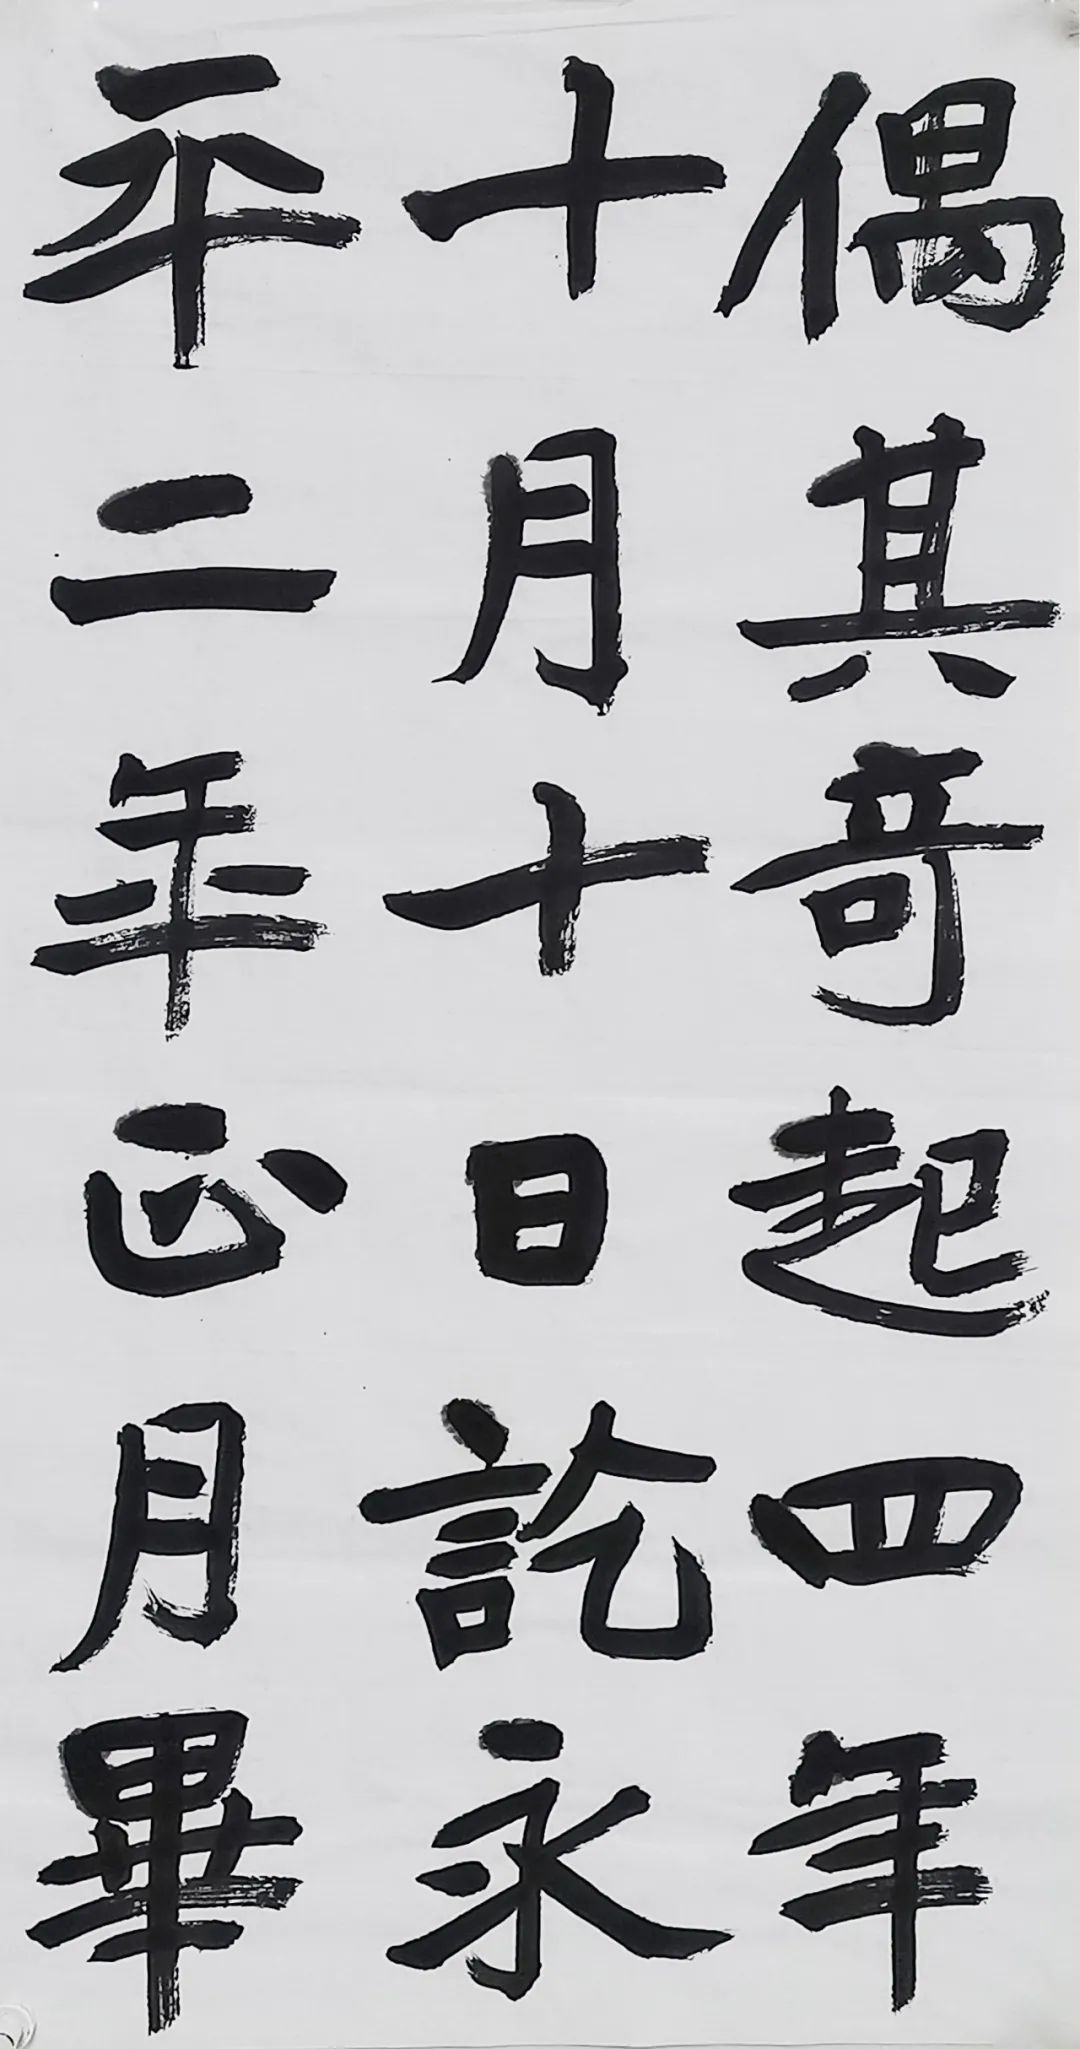 偶其奇起四年
十月十日訖永
平二年正月畢